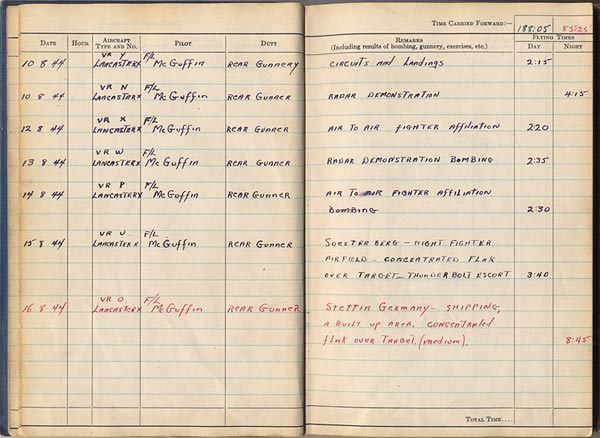 TIME CARRIED FORWARD:— 188:05 83:25
DATE HOUR AIRCRAFT TYPE AND NO. PILOT DUTY REMARKS (Including results of bombing, gunnery, exercises, etc.) FLYING TIMES DAY NIGHT
VR Y F/L
10 8 44 LANCASTER X McGuffin REAR GUNNERY CIRCUITS and Landings 2:15
VR N F/L
10 8 44 LANCASTER X McGuffin REAR GUNNER RADAR DEMONSTRATION 4:15
VR X F/L
12 8 44 LANCASTER X McGuffin REAR GUNNER AIR TO AIR FIGHTER AFFILIATION 2:20
VR W F/L
13 8 44 LANCASTER X McGuffin REAR GUNNER RADAR DEMONSTRATION BOMBING 2:35
VR P F/L
14 8 44 LANCASTER X McGuffin REAR GUNNER AIR TO AIR FIGHTER AFFILIATION
BOMBING 2:30
VR U. F/L
15 8 44 LANCASTER X McGuffin REAR GUNNER SOESTERBERG – NIGHT FIGHTER
AIRFIELD – CONCENTRATED FLAK
OVER TARGET – THUNDERBOLT ESCORT 3:40
VR O. F/L
16 8 44 LANCASTER X McGuffin REAR GUNNER STETTIN GERMANY – SHIPPING,
A BUILT UP AREA. CONCENTRATED
flAK OVER TARGET. (MEDIUM). 8:45
TOTAL TIME....